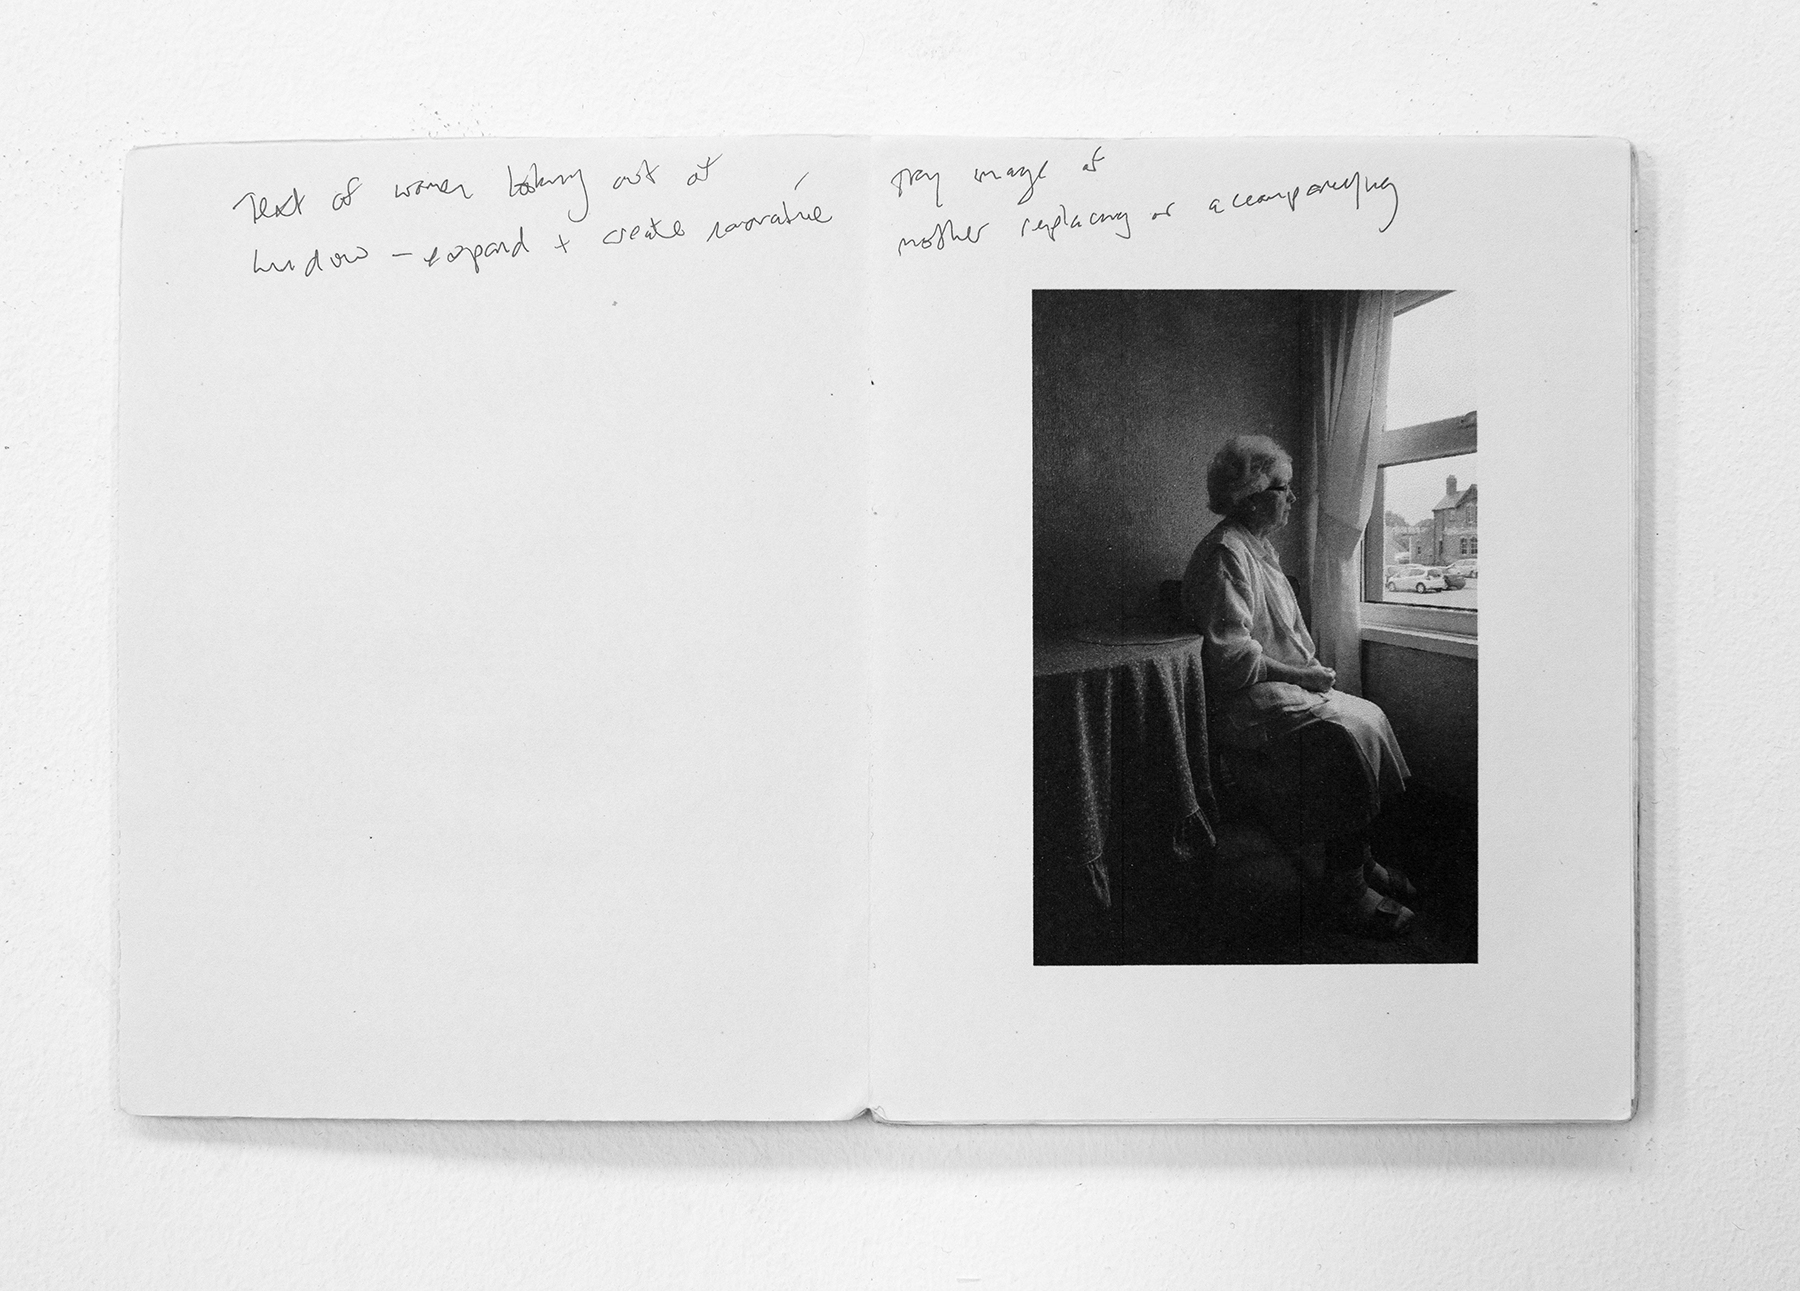 Text of women looking out of
window – expand + create narrative
image of
mother replacing or accompanying